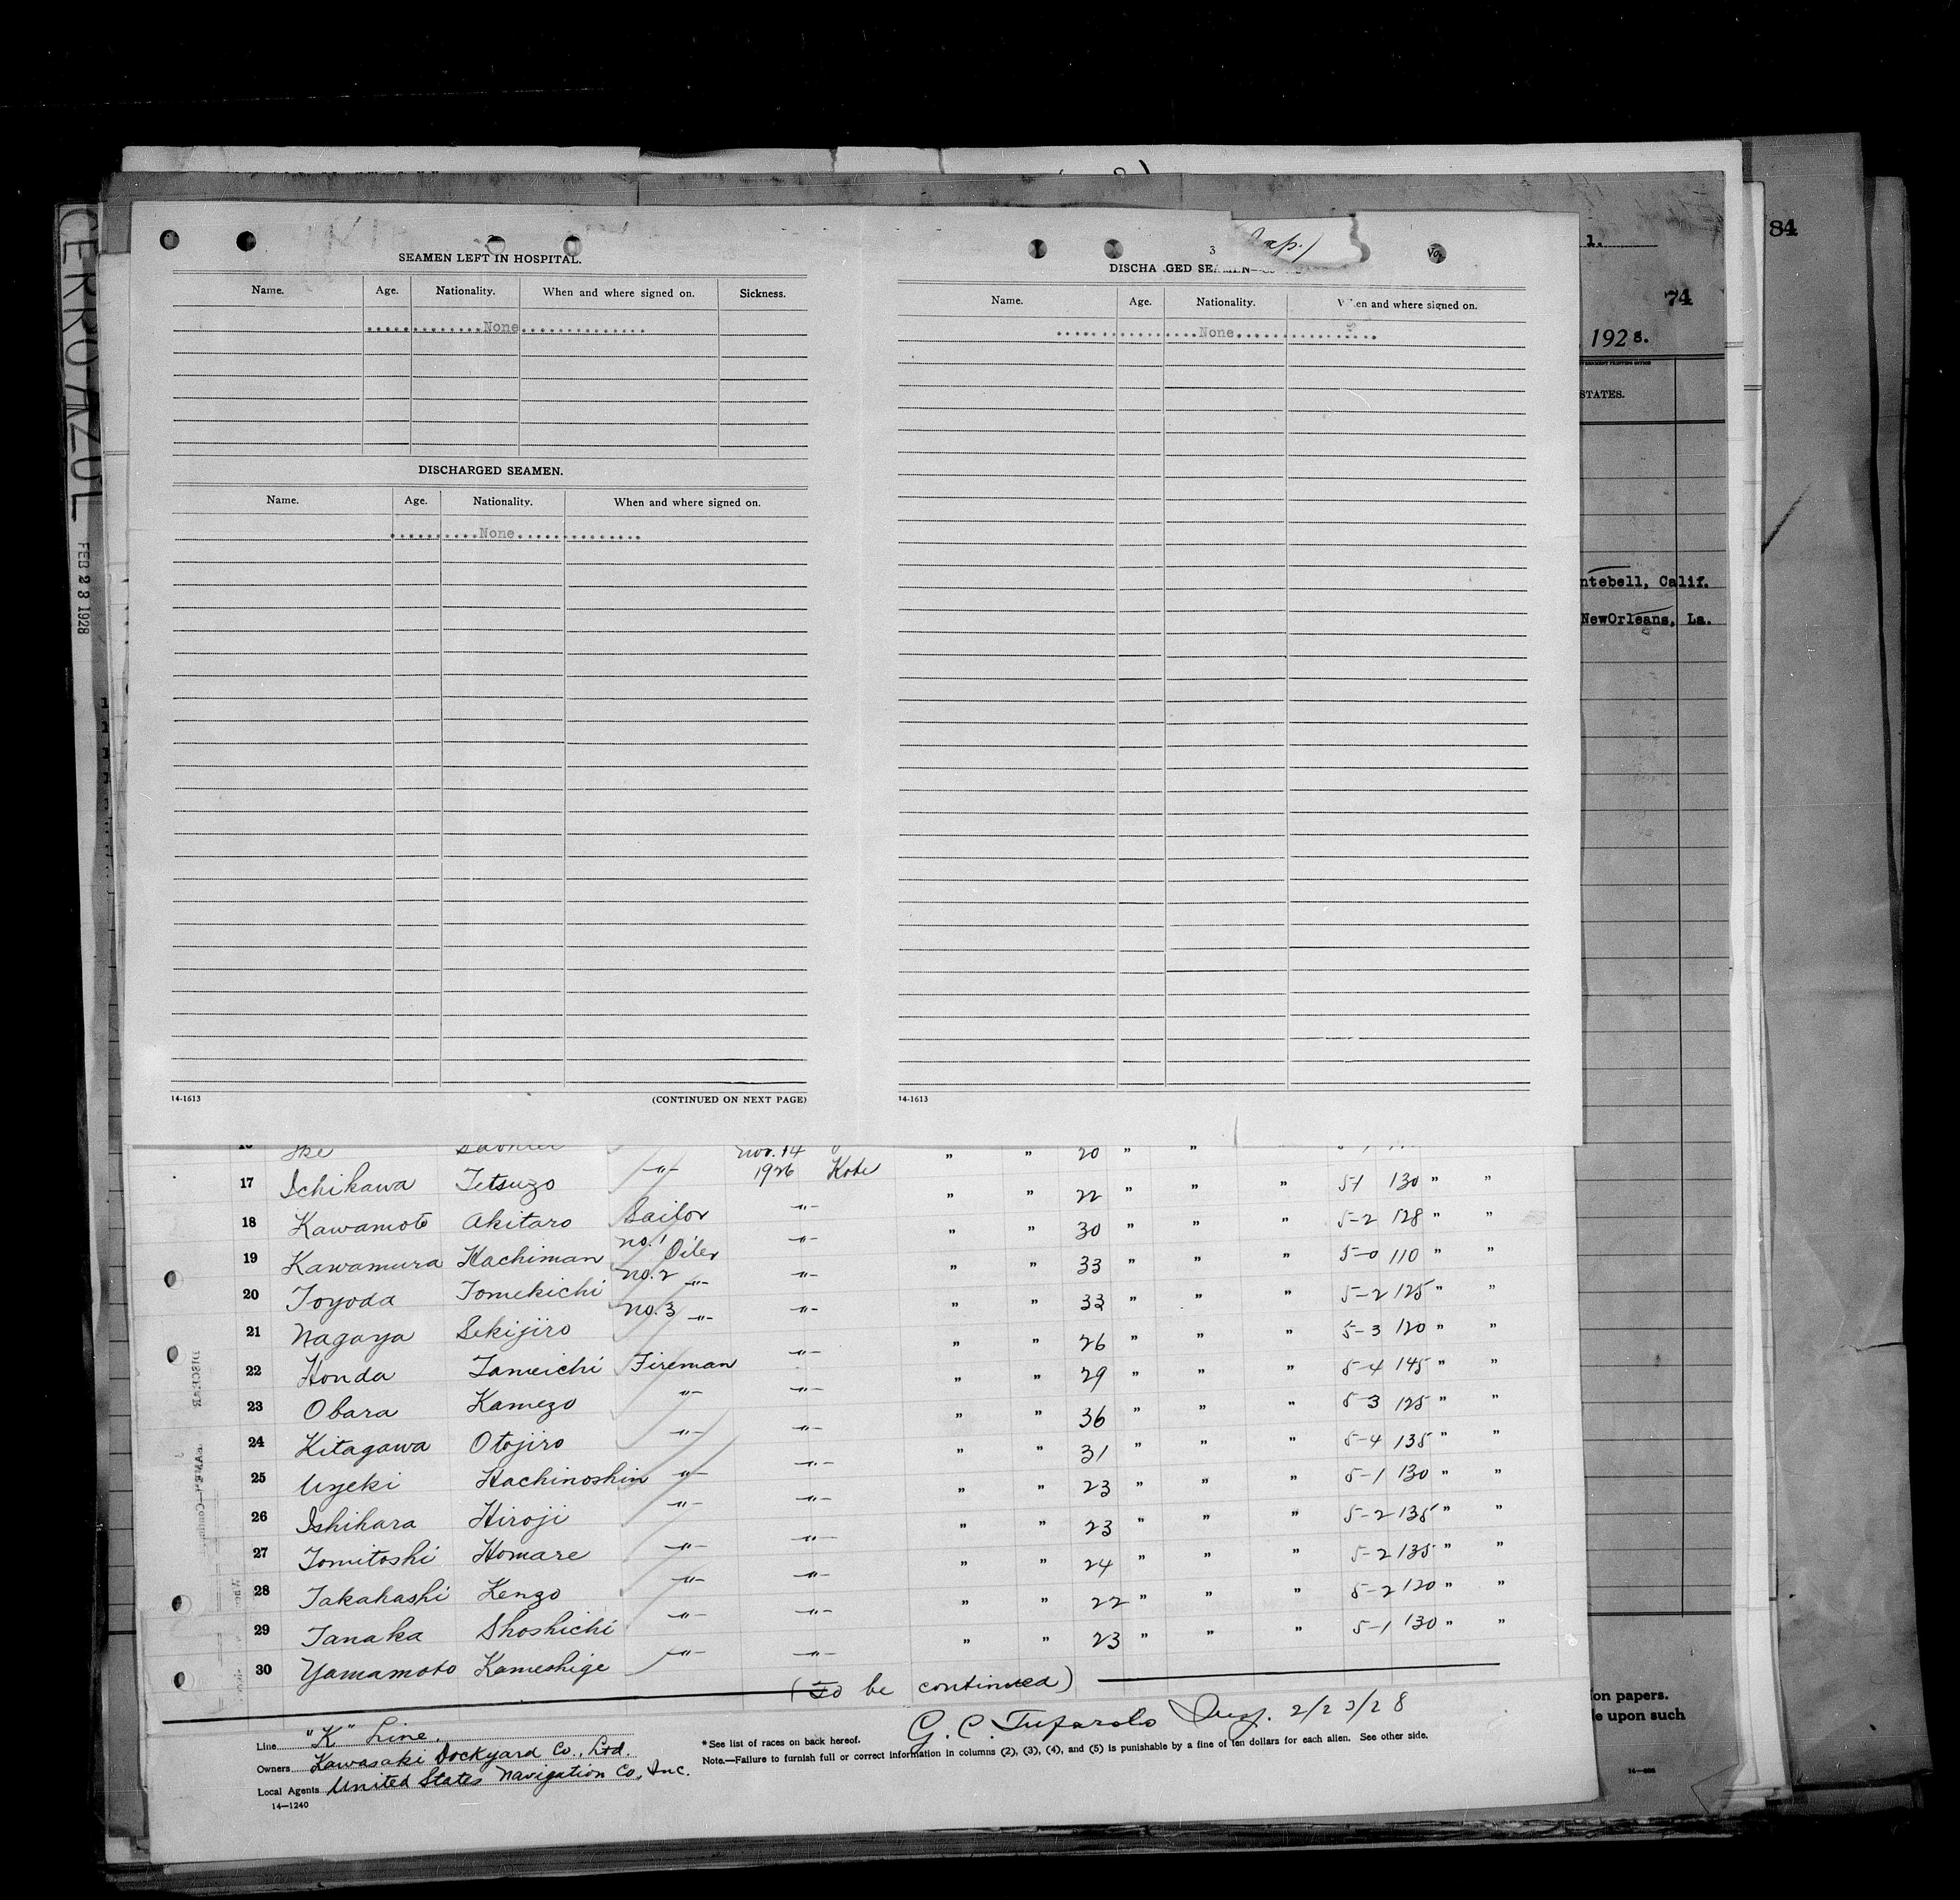 84
1.
74
1928.
STATES.
ntebell, Calif.
NewOrleans, La.
CERRO AZUL FEB 23 1928
SEAMEN LEFT IN HOSPITAL.
Name. Age. Nationality. When and where signed on. Sickness.
None
DISCHARGED SEAMEN.
Name. Age. Nationality. When and where signed on.
None
14-1613 (CONTINUED ON NEXT PAGE)
3
Jap.)
Name. Age. Nationality. When and where signed on.
None
14-1613
Nov. 14 " " 20 " "
17 Ichikawa Tetsuzo -"- 1926 Kobe " " 22 " " " 5-1 130 " "
18 Kawamoto Akitaro Sailor -"- " " 30 " " " 5-2 128 " "
19 Kawamura Hachiman No. 1 Oiler -"- " " 33 " " " 5-0 110 " "
20 Toyoda Tomekichi No. 2 -"- -"- " " 33 " " " 5-2 125 " "
21 Nagaya Sekijiro No. 3 -"- -"- " " 26 " " " 5-3 120 " "
22 Honda Tameichi Fireman -"- " " 29 " " " 5-4 145 " "
23 Obara Kamezo -"- -"- " " 36 " " " 5-3 125 " "
24 Kitagawa Otojiro -"- -"- " " 31 " " " 5-4 135 " "
25 Uyeki Hachinoshin -"- -"- " " 23 " " " 5-1 130 " "
26 Ishihara Hiroji -"- -"- " " 23 " " " 5-2 135 " "
27 Tomitoshi Homare -"- -"- " " 24 " " " 5-2 135 " "
28 Takahashi Kenzo -"- -"- " " 22 " " " 5-2 120 " "
29 Tanaka Shoshichi -"- -"- " " 23 " " " 5-1 130 " "
30 Yamamoto Kameshige -"- -"-
(To be continued)
Line "K" Line.
Owners Kawasaki Dockyard Co., Ltd.
Local Agents United States Navigation Co., Inc.
14—1240
G. C. Tufarolo Insp. 2/23/28
*See list of races on back hereof.
Note.—Failure to furnish full or correct information in columns (2), (3), (4), and (5) is punishable by a fine of ten dollars for each alien. See other side.
on papers.
e upon such